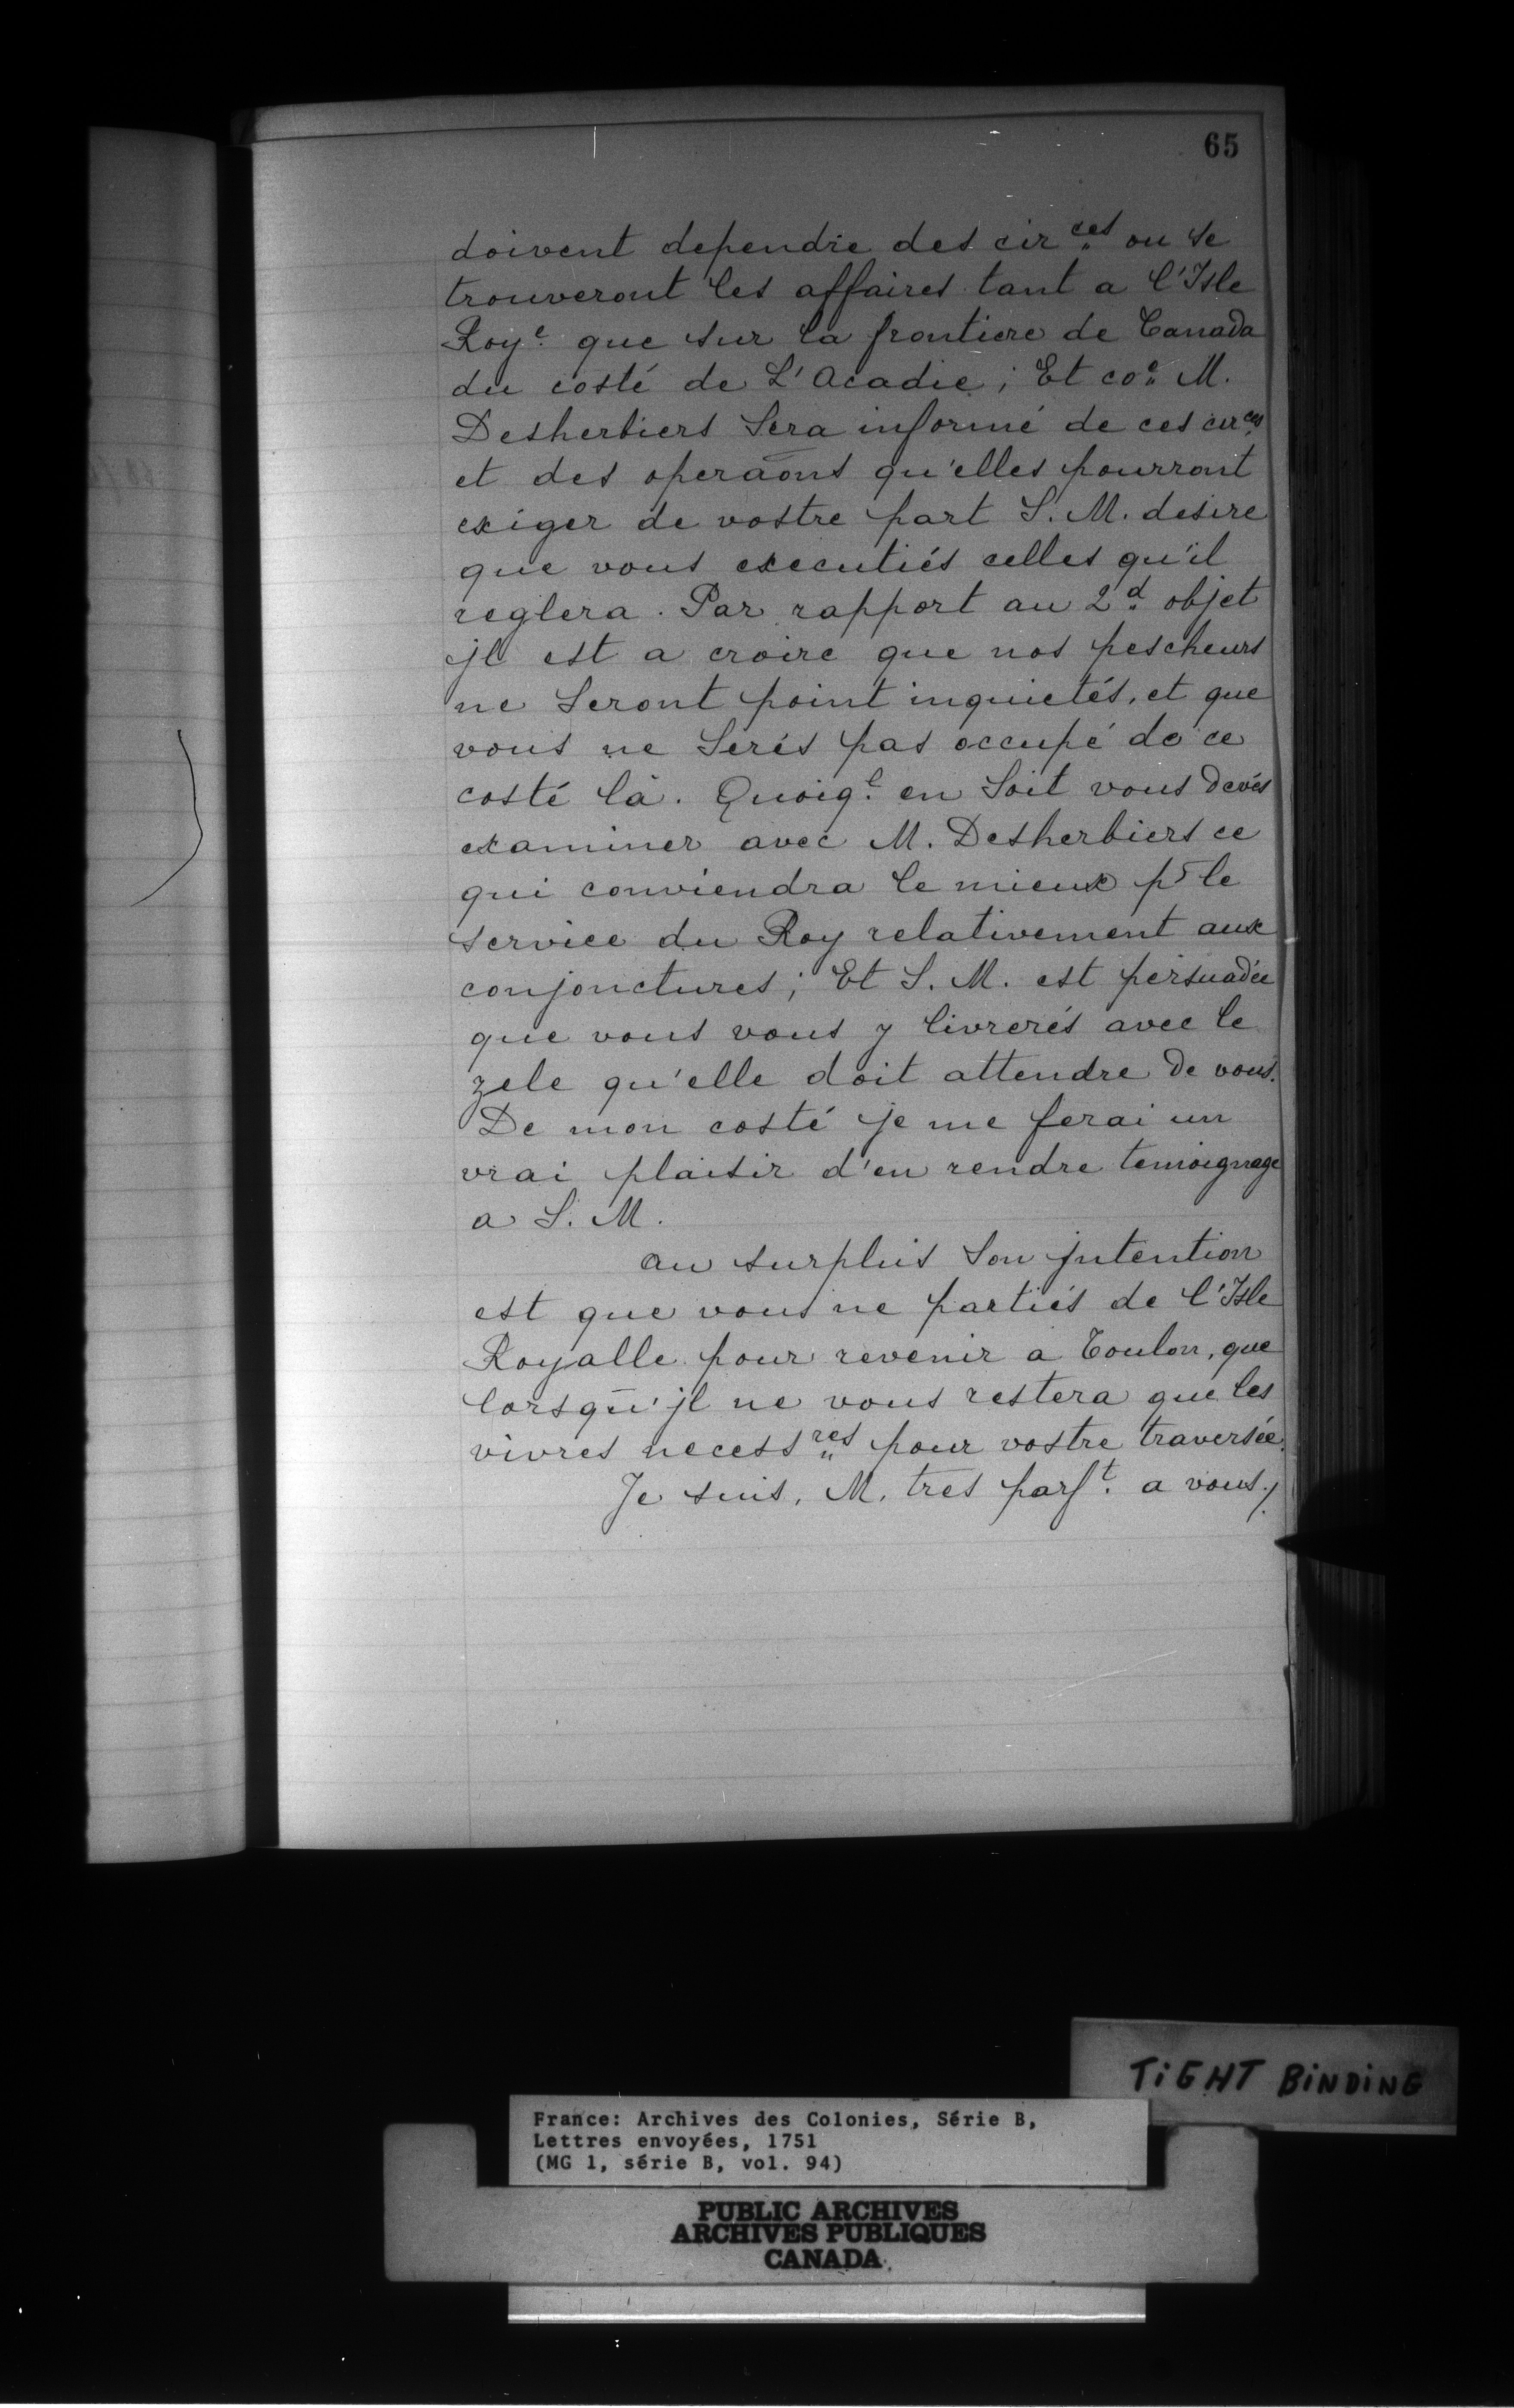 65
doivent dependre des cir.ces ou se
trouveront les affaires tant a l'Isle
Roy.e que sur la frontiere de Canada
du costé de L'Acadie ; Et co.e M.
Desherbiers Sera informé de ces cir.ces
et des operaōns qu'elles pourront
exiger de vostre part S. M. desire
que vous executiés celles qu'il
reglera. Par rapport au 2.d objet
jl est a croire que nos pescheurs
ne Seront point inquietés, et que
vous ne Serés pas occupé de ce
costé là. Quoiq.l en Soit vous devés
examiner avec M. Desherbiers ce
qui conviendra le mieux pr le
service du Roy relativement aux
conjonctures ; Et S. M. est persuadée
que vous vous y livrerés avec le
zele qu'elle doit attendre de vous.
De mon costé je me ferai un
vrai plaisir d'en rendre temoignage
a S. M.
au surplus Son jntention
est que vous ne partiés de l'Isle
Royalle pour revenir a Toulon, que
lorsqu'jl ne vous restera que les
vivres necess.res pour vostre traversée.
Je suis, M. tres parf.t a vous./.
TiGHT BiNDiNG
France: Archives des Colonies, Série B,
Lettres envoyées, 1751
(MG 1, série B, vol. 94)
PUBLIC ARCHIVES
ARCHIVES PUBLIQUES
CANADA